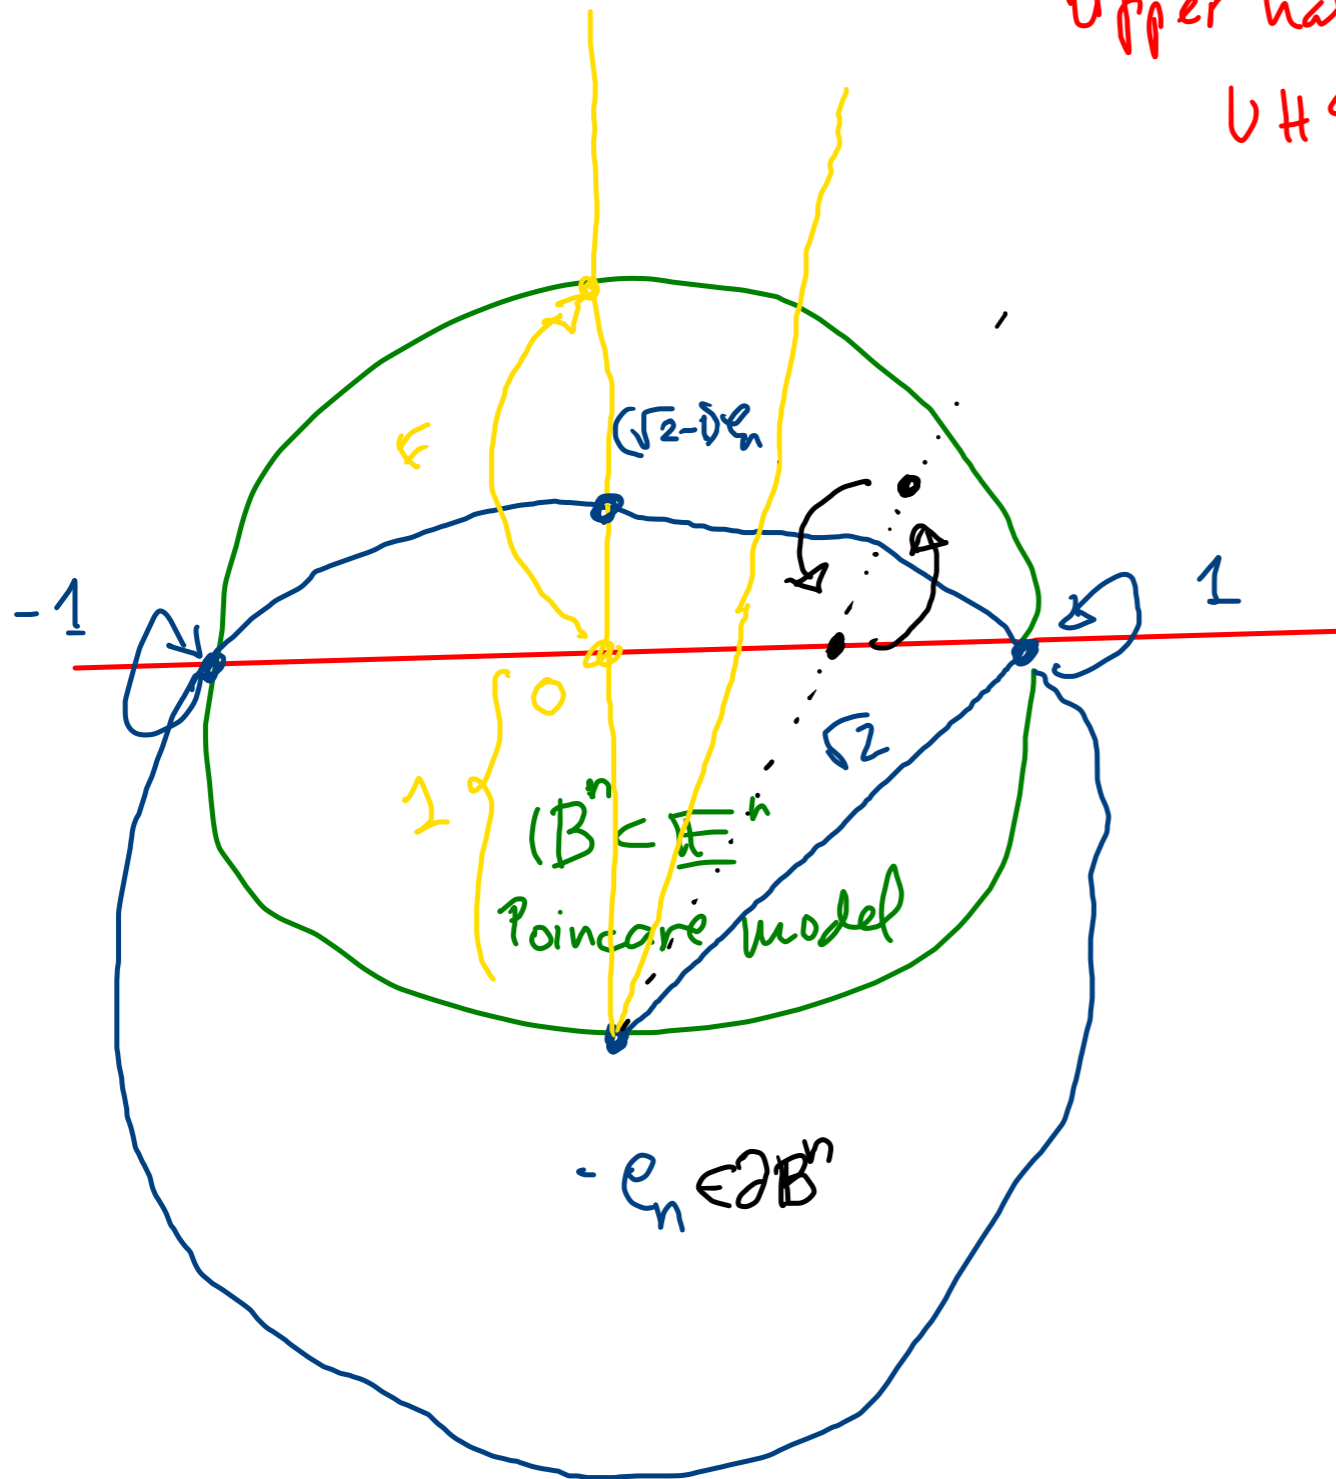 Upper ha
UHS
(√2-1)e_n
-1
1
0
√2
1
B^n ⊂ E^n
Poincare model
-e_n ∈∂B^n